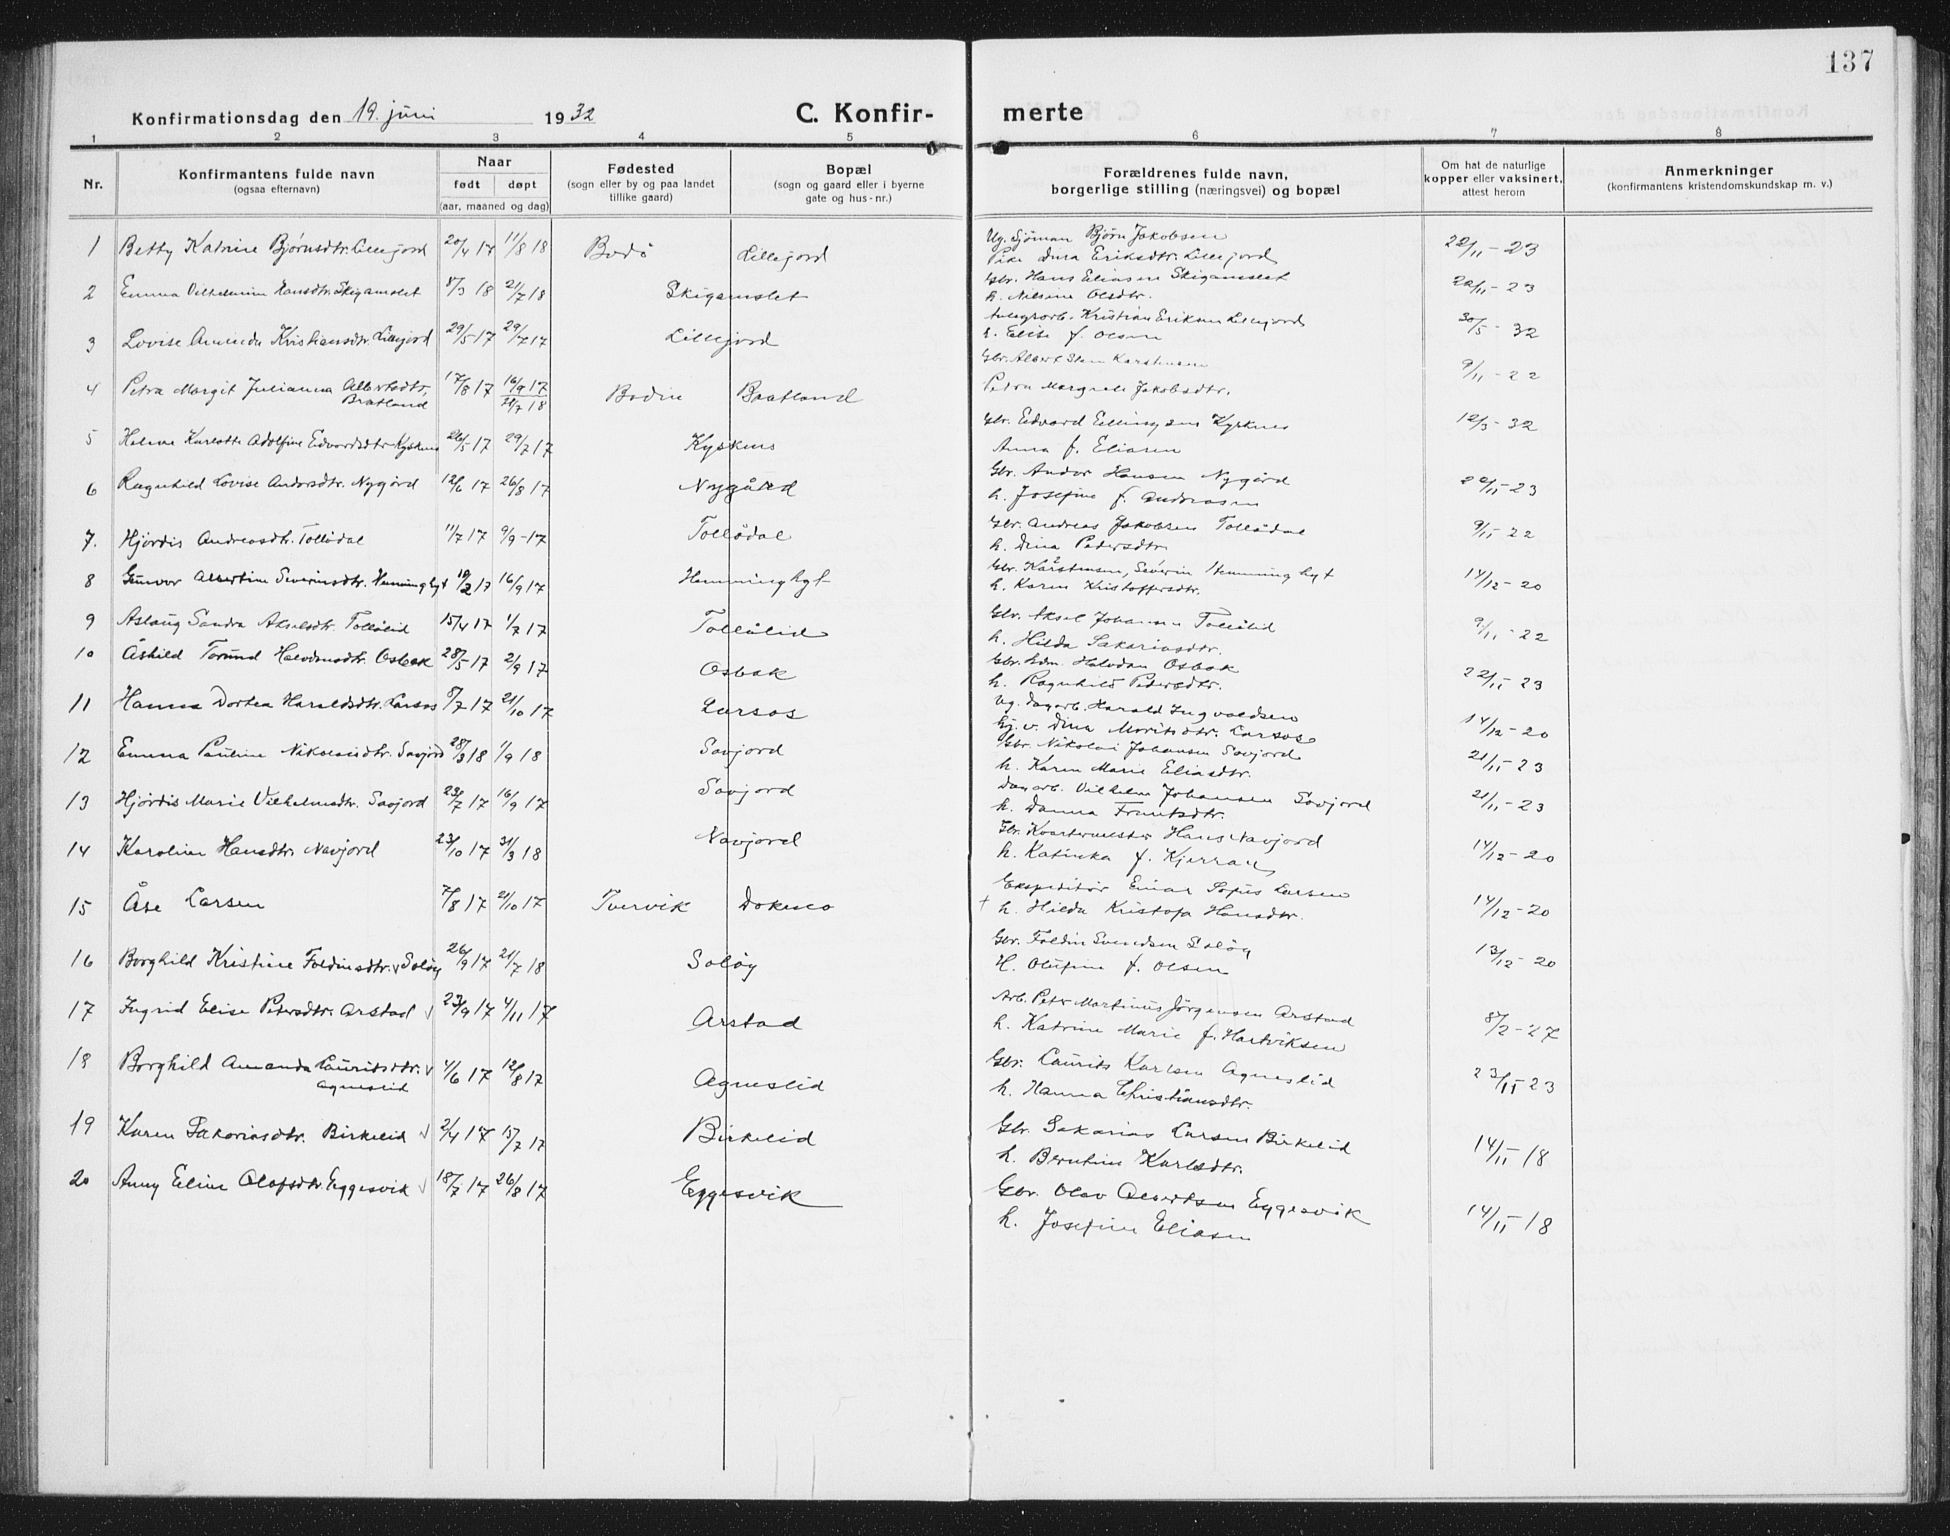 137
Konfirmationsdag den 19. juni 1932
C. Konfirmerte
1 2 3 4 5 6 7 8
Nr. Konfirmantens fulde navn (ogsaa efternavn) Naar født døpt (aar, maaned og dag) Fødested (sogn eller by og paa landet tillike gaard) Bopæl (sogn og gaard eller i byerne gate og hus-nr.) Forældrenes fulde navn, borgerlige stilling (næringsvei) og bopæl Om hat de naturlige kopper eller vaksinert, attest herom Anmerkninger (konfirmantens kristendomskundskap m. v.)
1 Betty Katrine Bjørnsdtr. Lillejord 20/4 17 11/8 18 Bodö Lillejord Ug. Sjöman Björn Jakobsen
Pike Dina Eriksdtr. Lillejord 22/11-23
2 Emma Vilhelmine Hansdtr. Skigamslet 8/3 18 21/7 18 Skigamslet Gbr. Hans Eliasen Skigamslet
h. Nilsine Olsdtr. 22/11-23
3 Lovise Aminda Kristiansdtr. Lillejord 29/5 17 29/7 17 Lillejord Kristian Eriksen Lillejord
h. Elise f. Olsen 30/5-32
4 Petra Margit Julianna Albertsdtr. Bratland 17/8 17 16/9 17 21/7 18 Bodin Bratland Gbr. Albert Karstensen
Petra Margrete Jakobsdtr. 9/11-22
5 Helene Karlotte Adolfine Edvardsdtr. Kysknes 26/5 17 29/7 17 Kysknes Gbr. Edvard Ellingsen Kysknes
Anna f. Eliasen 12/3-32
6 Ragnhild Lovise Andorsdtr. Nygård 12/6 17 26/8 17 Nygård Gbr. Andor Hansen Nygård
h. Josefine f. Andreasen 22/11-23
7. Hjördis Andreasdtr. Tollådal 11/7 17 9/9-17 Tollådal Gbr. Andreas Jakobsen Tollådal
h. Dina Pedersdtr 9/11-22
8 Gunvor Albertine Severinsdtr. Hemminghyt 10/2 17 16/9 17 Hemminghyt Gbr. Karstensen, Severin Hemminghyt
h. Karen Kristoffersdtr. 14/12-20
9 Aslaug Sandra Akselsdtr. Tollålid 15/4 17 1/7 17 Tollålid Gbr. Aksel Johansen Tollålid
h. Hilda Sakariasdtr. 9/11-22
10 Åshild Torund Halvdansdtr. Osbak 28/5 17 2/9 17 Osbak Gbr. Edm. Halvdan Osbak
h. Ragnhild Pedersdtr. 22/11-23
11 Hanna Dortea Haraldsdtr. Larsos 8/7 17 21/10 17 Larsos Ug. dagarb. Harald Ingvaldsen
Gj. v. Dina Moritsdtr. Larsos 14/12-20
12 Emma Pauline Nikolaisdtr. Savjord 28/3 18 1/9 18 Savjord Gbr. Nikolai Johansen Savjord
h. Karen Marie Eliasdtr. 21/11-23
13 Hjördis Marie Vilhelmsdtr. Savjord 23/7 17 16/9 17 Savjord Dagarb. Vilhelm Johansen Savjord
h. Danna Frantsdtr. 21/11-23
14 Karoline Hansdtr. Navjord 23/10 17 31/3 18 Navjord Gbr. Kvartermester Hans Navjord
h. Katinka f. Kjerran 14/12-20
15 Åse Larsen 7/8 17 21/10 17 Tvervik Dokmo Ekspeditör Einar Sofus Larsen
† h. Hilda Kristofa Hansdtr. 14/12-20
16 Borghild Kristine Foldinsdtr. v Solöy 26/9 17 21/7 18 Solöy Gbr. Foldin Svendsen Solöy
H. Olufine f. Olsen 13/12-20
17 Ingrid Elise Petersdtr. Arstad v 23/9 17 4/11 17 Arstad Arb. Petr Martinus Jörgensen Arstad
h. Katrine Marie f. Hartviksen 8/2-27
18 Borghild Amanda Lauritsdtr. v Agneslid 4/6 17 12/8 17 Agneslid Gbr. Laurits Karlsen Agneslid
h. Hanna Christiansdtr. 23/11 23
19 Karen Sakariasdtr. Birkelid v 2/4 17 15/7 17 Birkelid Gbr. Sakarias Larsen Birkelid
h. Berntine Karlsdtr. 14/11-18
20 Anny Eline Olafsdtr. Eggesvik v 18/7 17 26/8 17 Eggesvik Gbr. Olav Albertsen Eggesvik
h. Josefine Eliasen 14/11-18